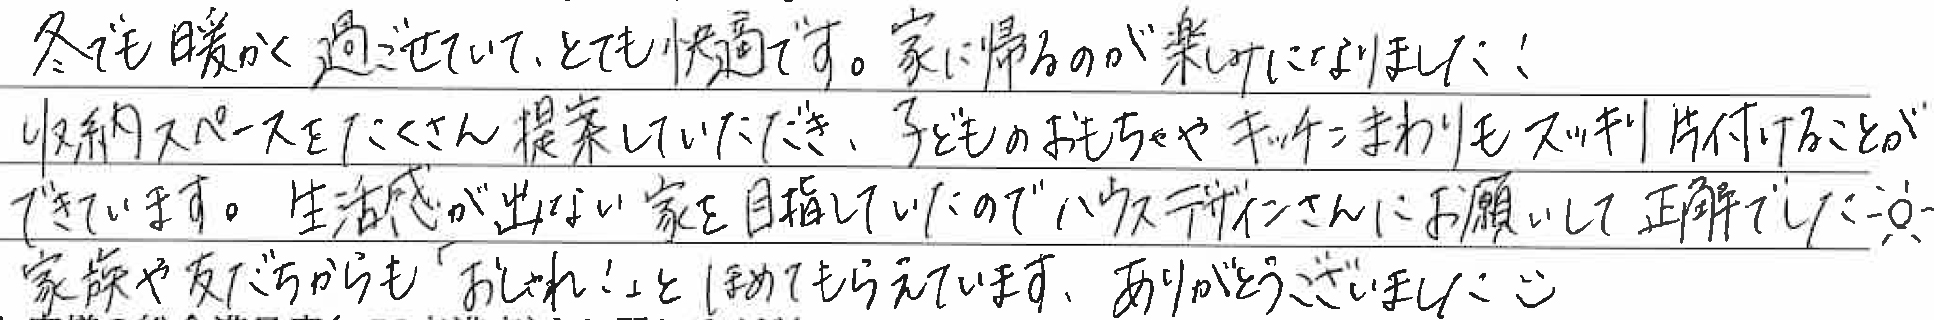 冬でも暖かく過ごせていて、とても快適です。家に帰るのが楽しみになりました!
収納スペースをたくさん提案していただき、子どものおもちゃやキッチンまわりもスッキリ片付けることが
できています。生活感が出ない家を目指していたのでハウスデザインさんにお願いして正解でした
家族や友だちからも「おしゃれ!」とほめてもらえています、ありがとうございました